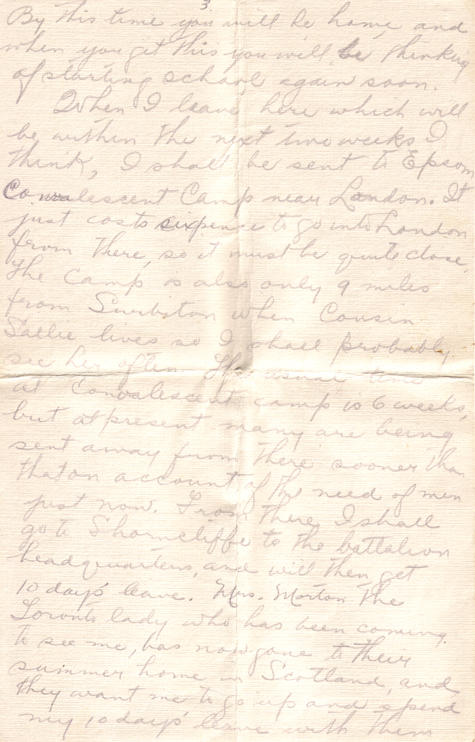 3.
By this time you will be home, and
when you get this you will be thinking
of starting school again soon.
When I leave here which will
be within the next two weeks I
think, I shall be sent to Epsom
Convalescent Camp near London. It
just costs sixpence to go into London
from there, so it must be quite close
The camp is also only 9 miles
from Surbiton when Cousin
Sallie lives so I shall probably
see her often. The usual time
at Convalescent camp is 6 weeks,
but at present many are being
sent away from there sooner than
that on account of the need of men
just now. From there I shall
go to Shorncliffe to the battalion
headquarters, and will then get
10 days' leave. Mrs. Morton the
Toronto lady who has been coming
to see me, has now gone to their
summer home in Scotland, and
they want me to go up and spend
my 10 days' leave with them